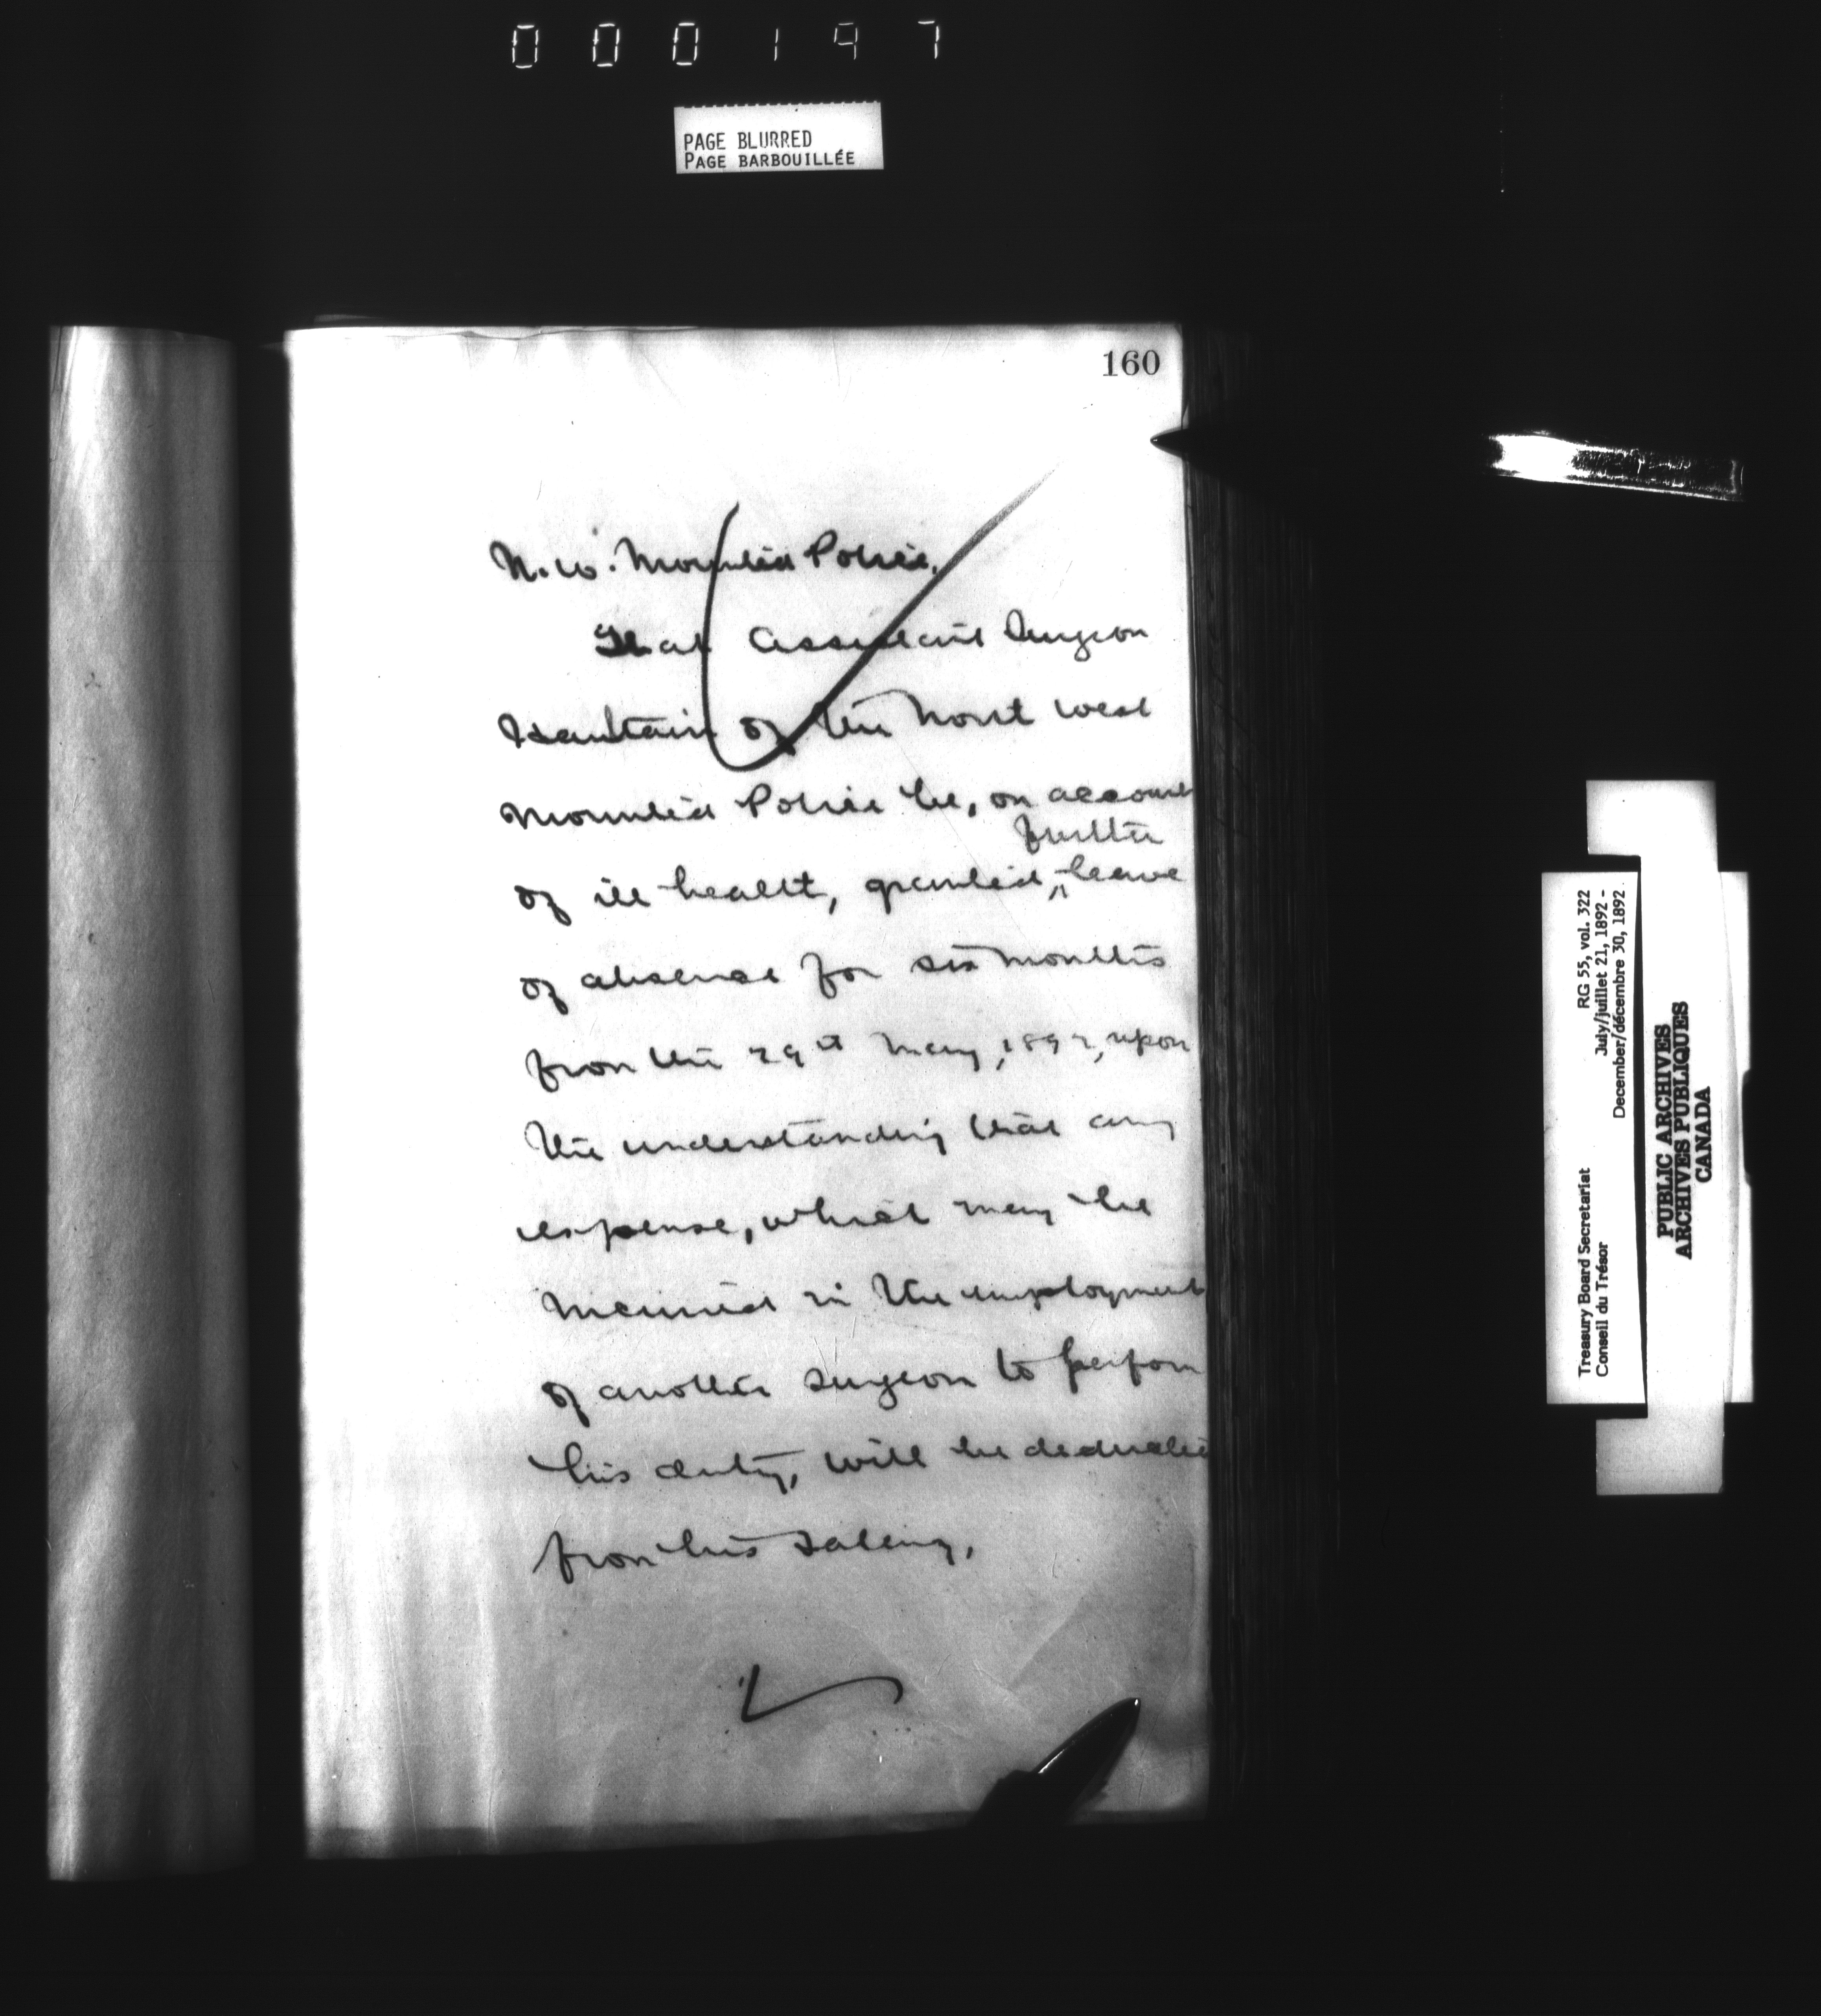 000197
PAGE BLURRED
PAGE BARBOUILLÉE
160
N.W. Mounted Police.
That Assistant Surgeon
Haultain of the North West
Mounted Police be, on account
further
of ill health, granted, ^ leave
of absence for six months
from the 29th May, 1892, upon
the understanding that any
expense, which may be
incurred in the employment
of another surgeon to perform
his duty, will be deducted
from his salary.
Treasury Board Secretariat RG 55, vol. 322
Conseil du Trésor July/juillet 21, 1892 -
December/décembre 30, 1892.
PUBLIC ARCHIVES
ARCHIVES PUBLIQUES
CANADA